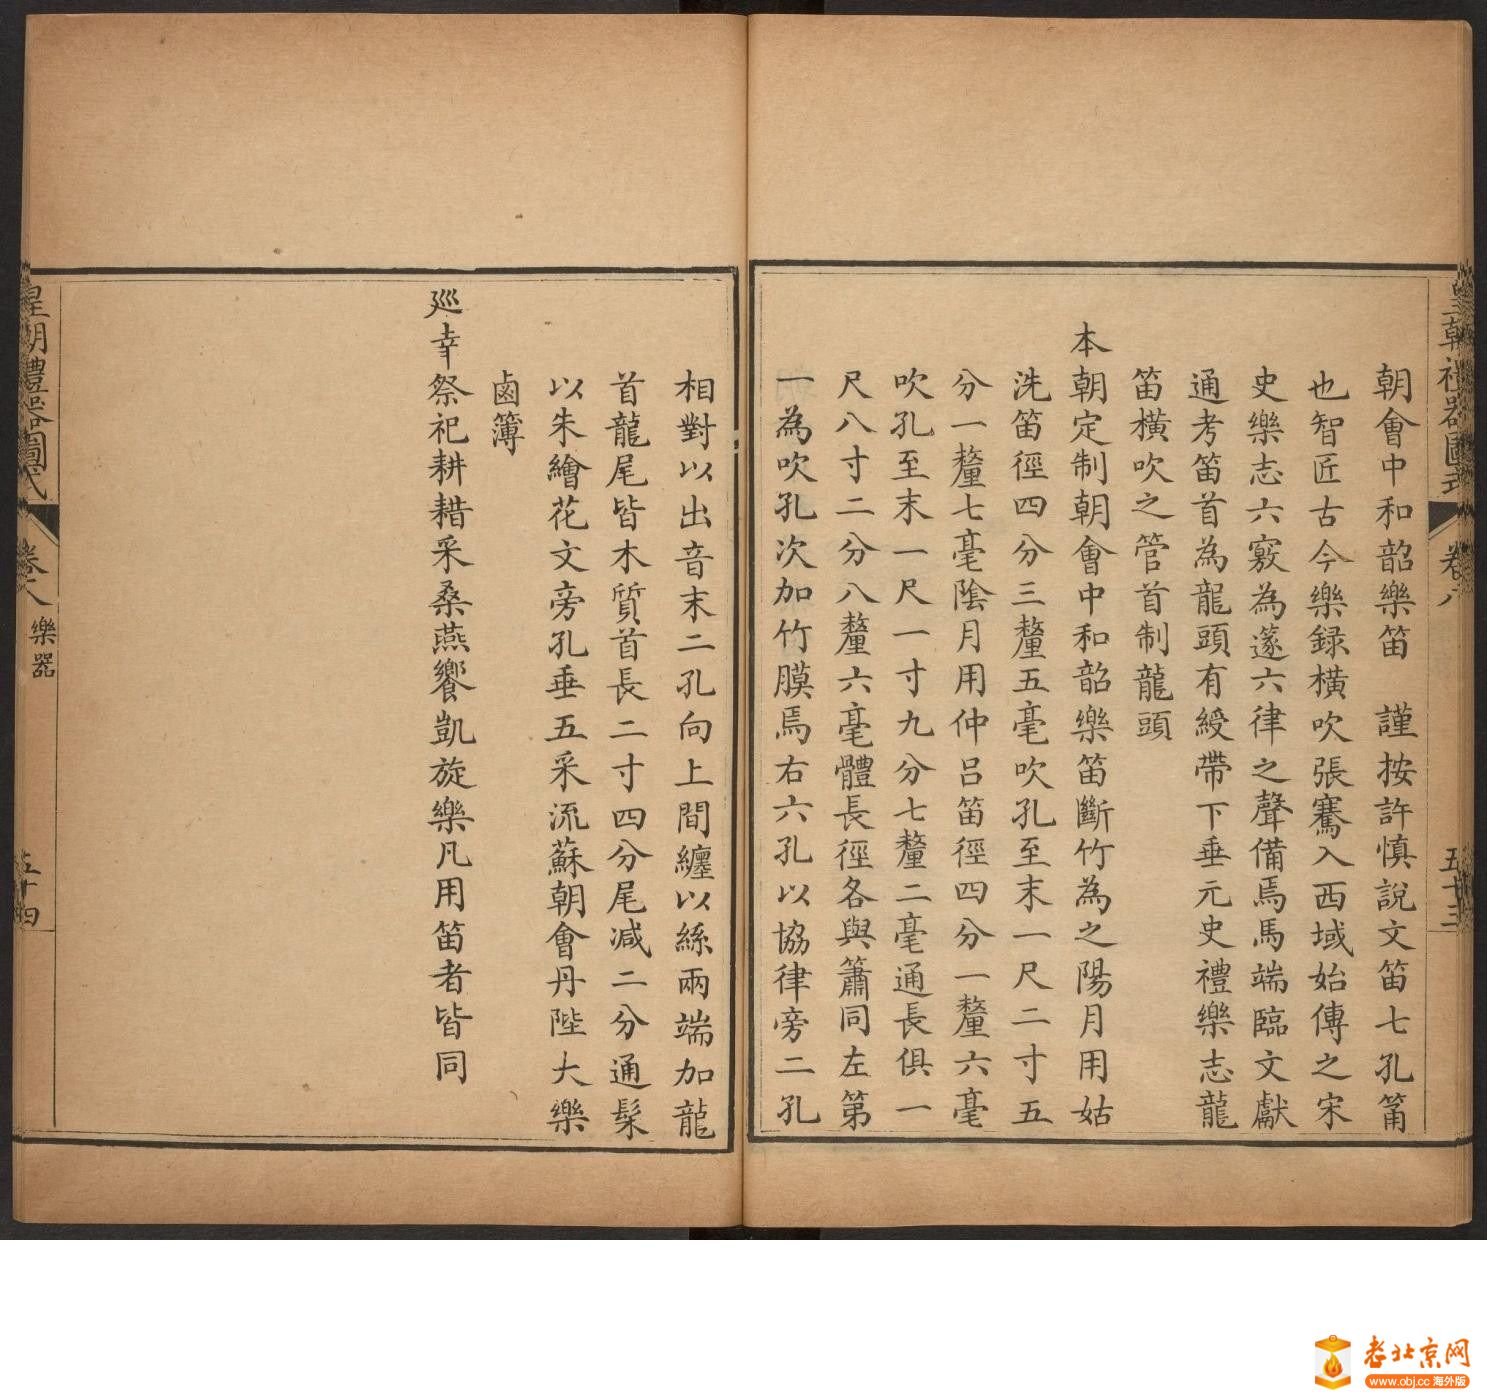 皇朝禮器圖式
卷八
五十三
朝會中和韶樂笛　謹按許慎說文笛七孔筩
也智匠古今樂録橫吹張騫入西域始傳之宋
史樂志六竅為篴六律之聲備焉馬端臨文獻
通考笛首為龍頭有綬帶下垂元史禮樂志龍
笛橫吹之管首制龍頭
本朝定制朝會中和韶樂笛斷竹為之陽月用姑
洗笛徑四分三釐五毫吹孔至末一尺二寸五
分一釐七毫陰月用仲呂笛徑四分一釐六毫
吹孔至末一尺一寸九分七釐二毫通長俱一
尺八寸二分八釐六毫體長徑各與簫同左第
一為吹孔次加竹膜焉右六孔以協律旁二孔
相對以出音末二孔向上間纏以絲兩端加龍
首龍尾皆木質首長二寸四分尾减二分通髹
以朱繪花文旁孔垂五采流蘇朝會丹陛大樂
鹵簿
廵幸祭祀耕耤采桑燕饗凱旋樂凡用笛者皆同
皇朝禮器圖式
卷八
樂器
五十四
老北京网
www.obj.cc 海外版